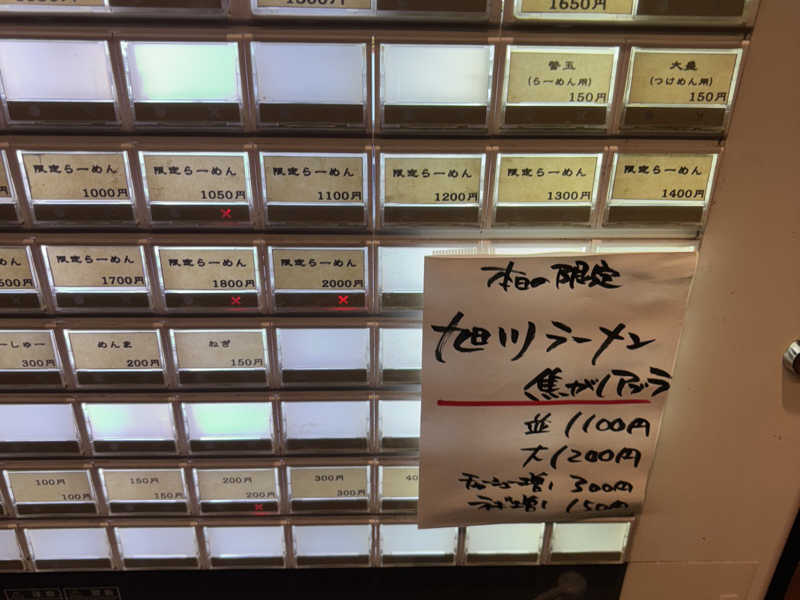 1650円
替玉
(らーめん用)
150円
大盛
(つけめん用)
150円
限定らーめん
1000円
限定らーめん
1050円
限定らーめん
1100円
限定らーめん
1200円
限定らーめん
1300円
限定らーめん
1400円
限定らーめん
1700円
限定らーめん
1800円
限定らーめん
2000円
ーしゅー
300円
めんま
200円
ねぎ
150円
100円
100円
150円
150円
200円
200円
300円
300円
本日の限定
旭川ラーメン
焦がしアブラ
並 1100円
大 1200円
チャーシュー増し 300円
ネギ増し 150円